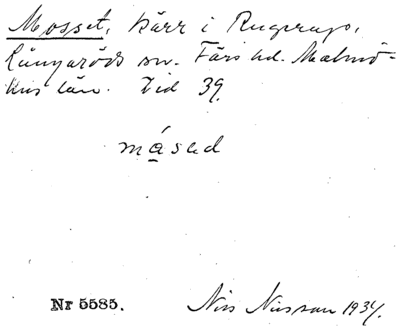 Mosset, kärr i Rugerups,
Lunyaröds sn. Färs hd. Malmö-
hus län. Tid 39.
måsəd
Nr 5585.
Nils Nilsson 1934.